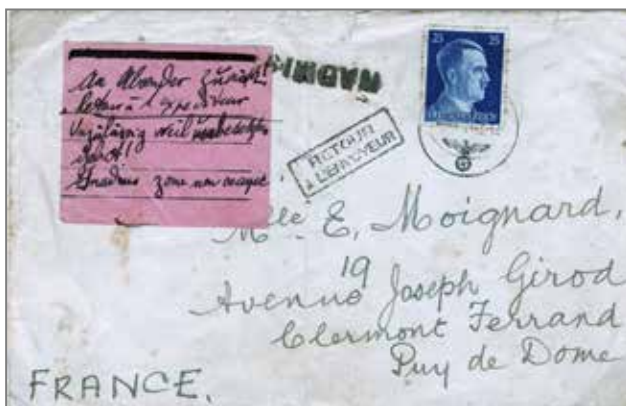 An Absender zurück!
Retour à l'expéditeur
Unzulässig weil unbesetztes
Gebiet!
Inadmis zone non occupée
INADMIS
25 25
DEUTSCHES REICH
RETOUR
A L'ENVOYEUR
Mlle E. Moignard,
19
Avenue Joseph Girod
Clermont Ferrand
Puy de Dome
FRANCE.